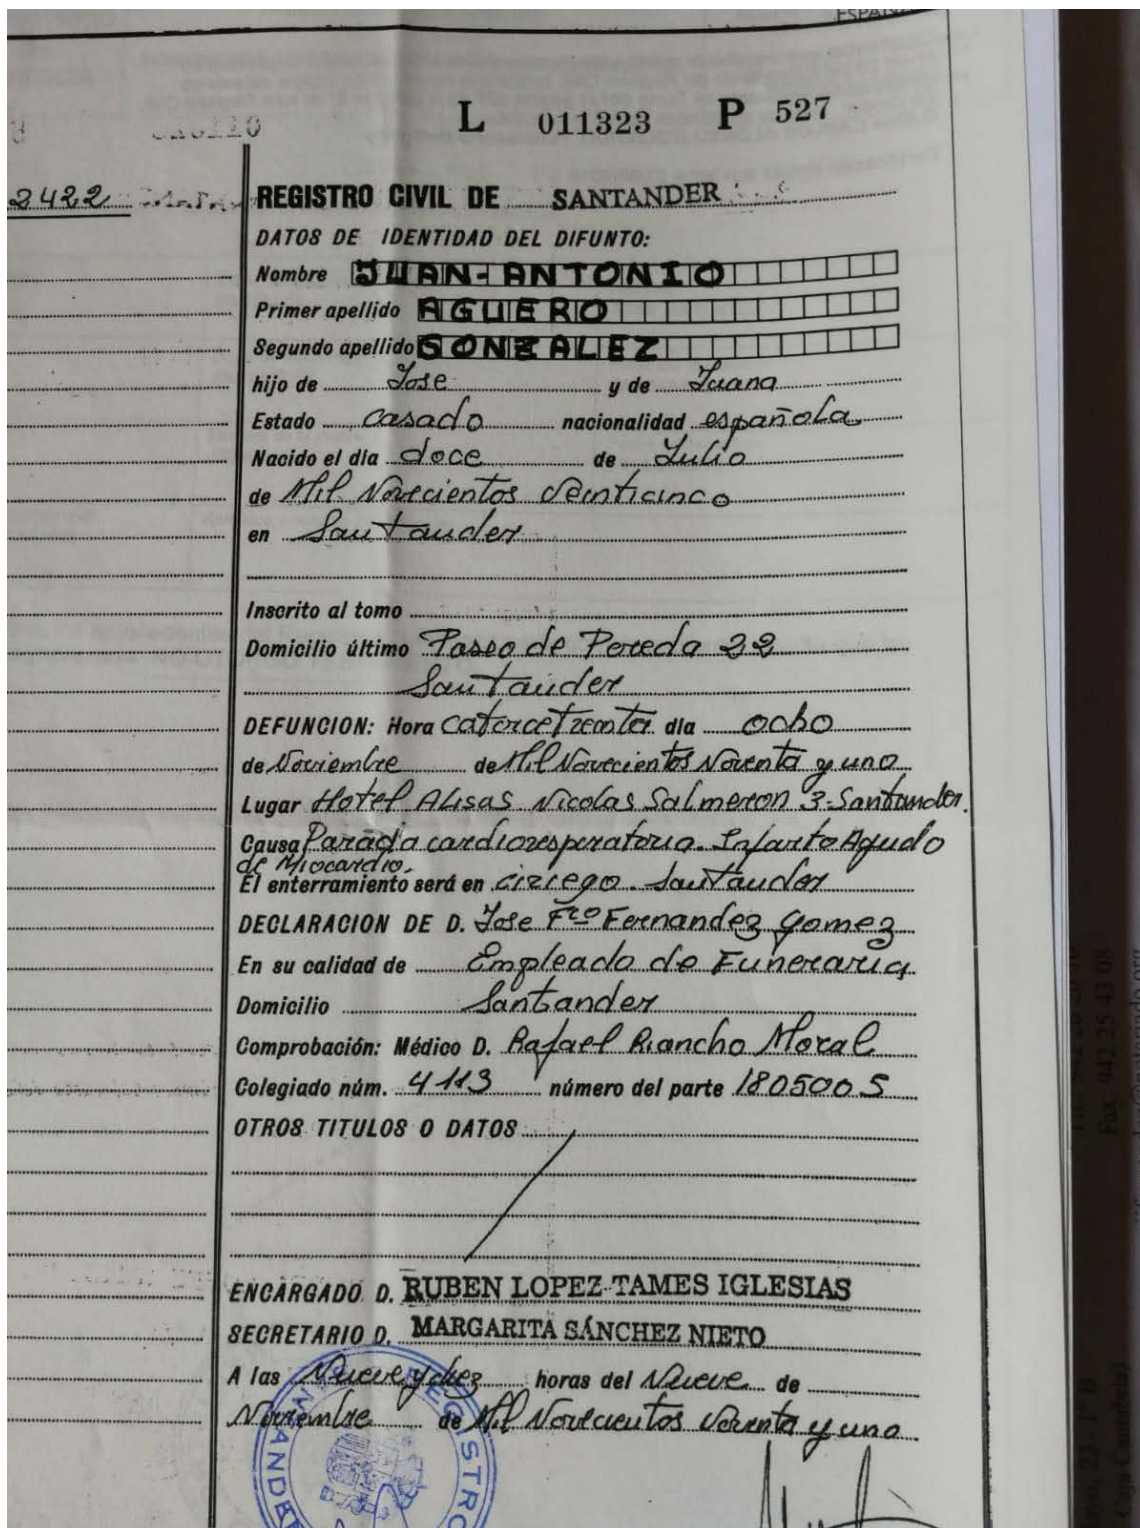 L 011323 P 527
2422
REGISTRO CIVIL DE SANTANDER
DATOS DE IDENTIDAD DEL DIFUNTO:
Nombre JUAN-ANTONIO
Primer apellido AGUERO
Segundo apellido GONZALEZ
hijo de Jose y de Juana
Estado casado nacionalidad española
Nacido el día doce de Julio
de Mil Novecientos Veinticinco
en Santander
Inscrito al tomo
Domicilio último Paseo de Pereda 22
Santander
DEFUNCION: Hora catorcetreinta día ocho
de Noviembre de Mil Novecientos Noventa y uno
Lugar Hotel Alisas Nicolas Salmeron 3-Santander.
Causa Parada cardiorespiratoria. Infarto Agudo
de Miocardio.
El enterramiento será en ciriego. Santander
DECLARACION DE D. Jose Fco Fernandez Gomez
En su calidad de Empleado de Funeraria
Domicilio Santander
Comprobación: Médico D. Rafael Riancho Moral
Colegiado núm. 4113 número del parte 1805005
OTROS TITULOS O DATOS
ENCARGADO D. RUBEN LOPEZ-TAMES IGLESIAS
SECRETARIO D. MARGARITA SÁNCHEZ NIETO
A las Nueve y diez horas del Nueve de
Noviembre de Mil Novecientos Noventa y uno.
REGISTRO
Fax 942 25 43 08